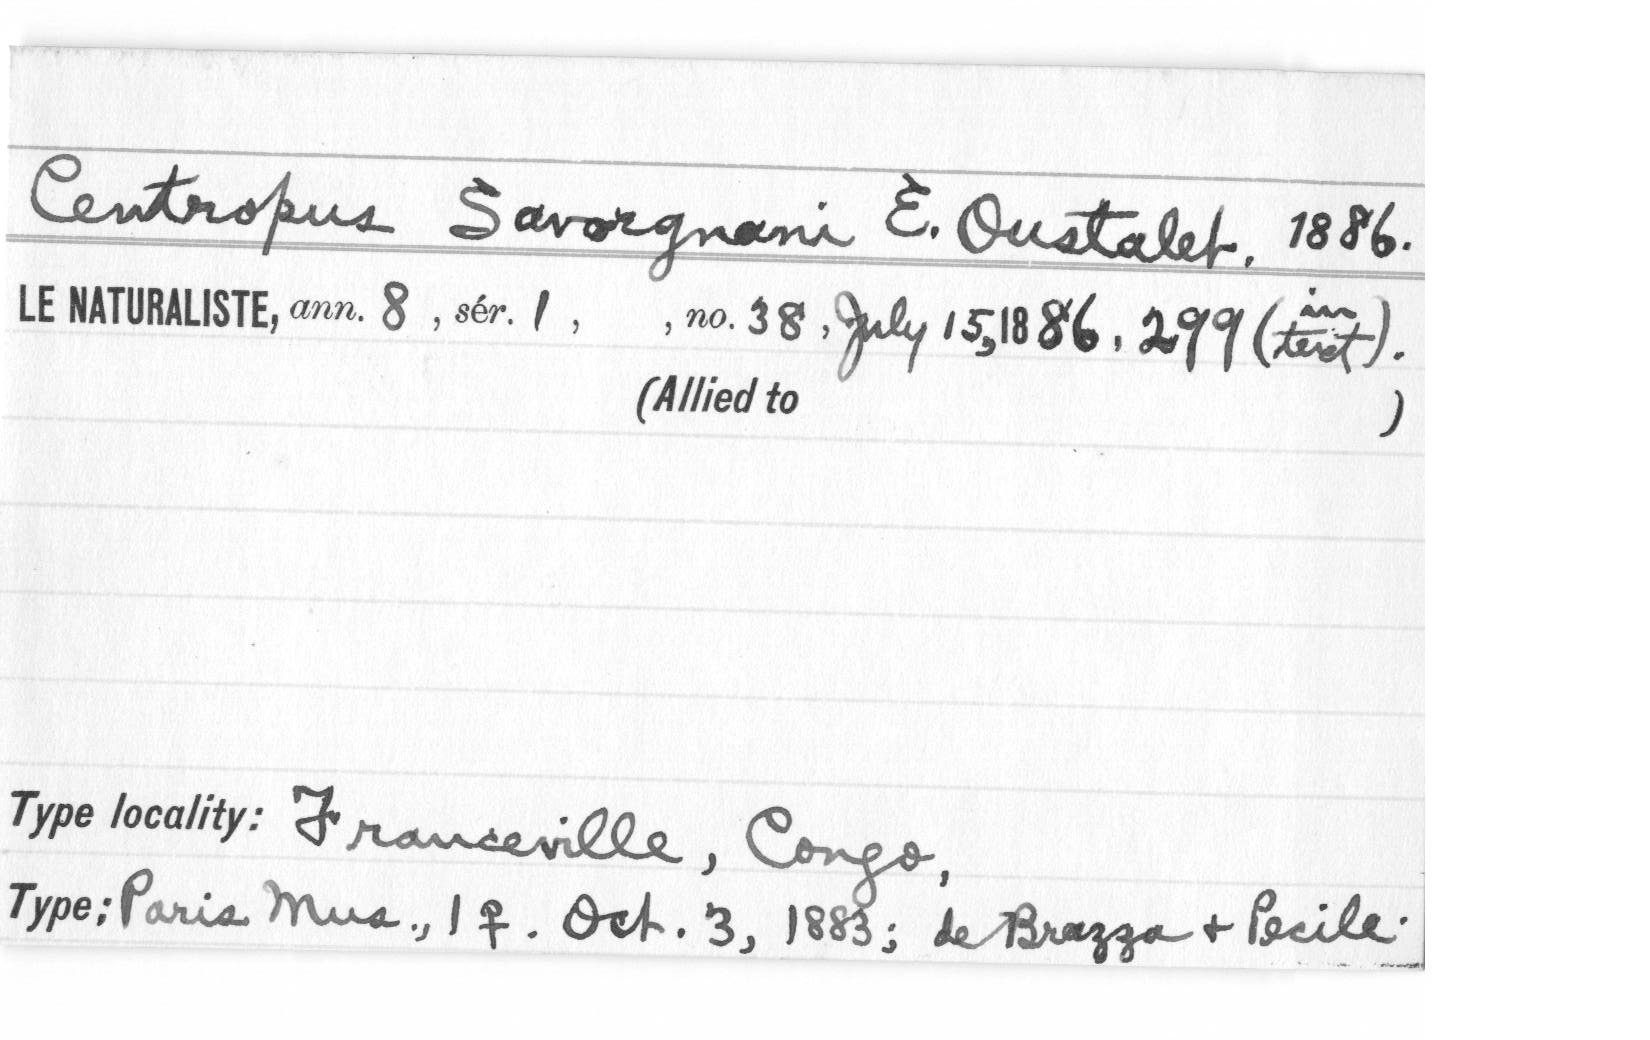 Centropus Savorgnani É. Oustalet. 1886.
LE NATURALISTE, ann. 8, sér. 1, , no. 38, July 15, 1886, 299 (in text).
(Allied to )
Type locality: Franceville, Congo,
Type: Paris Mus., 1 ♀. Oct. 3, 1883; de Brazza + Pecile.